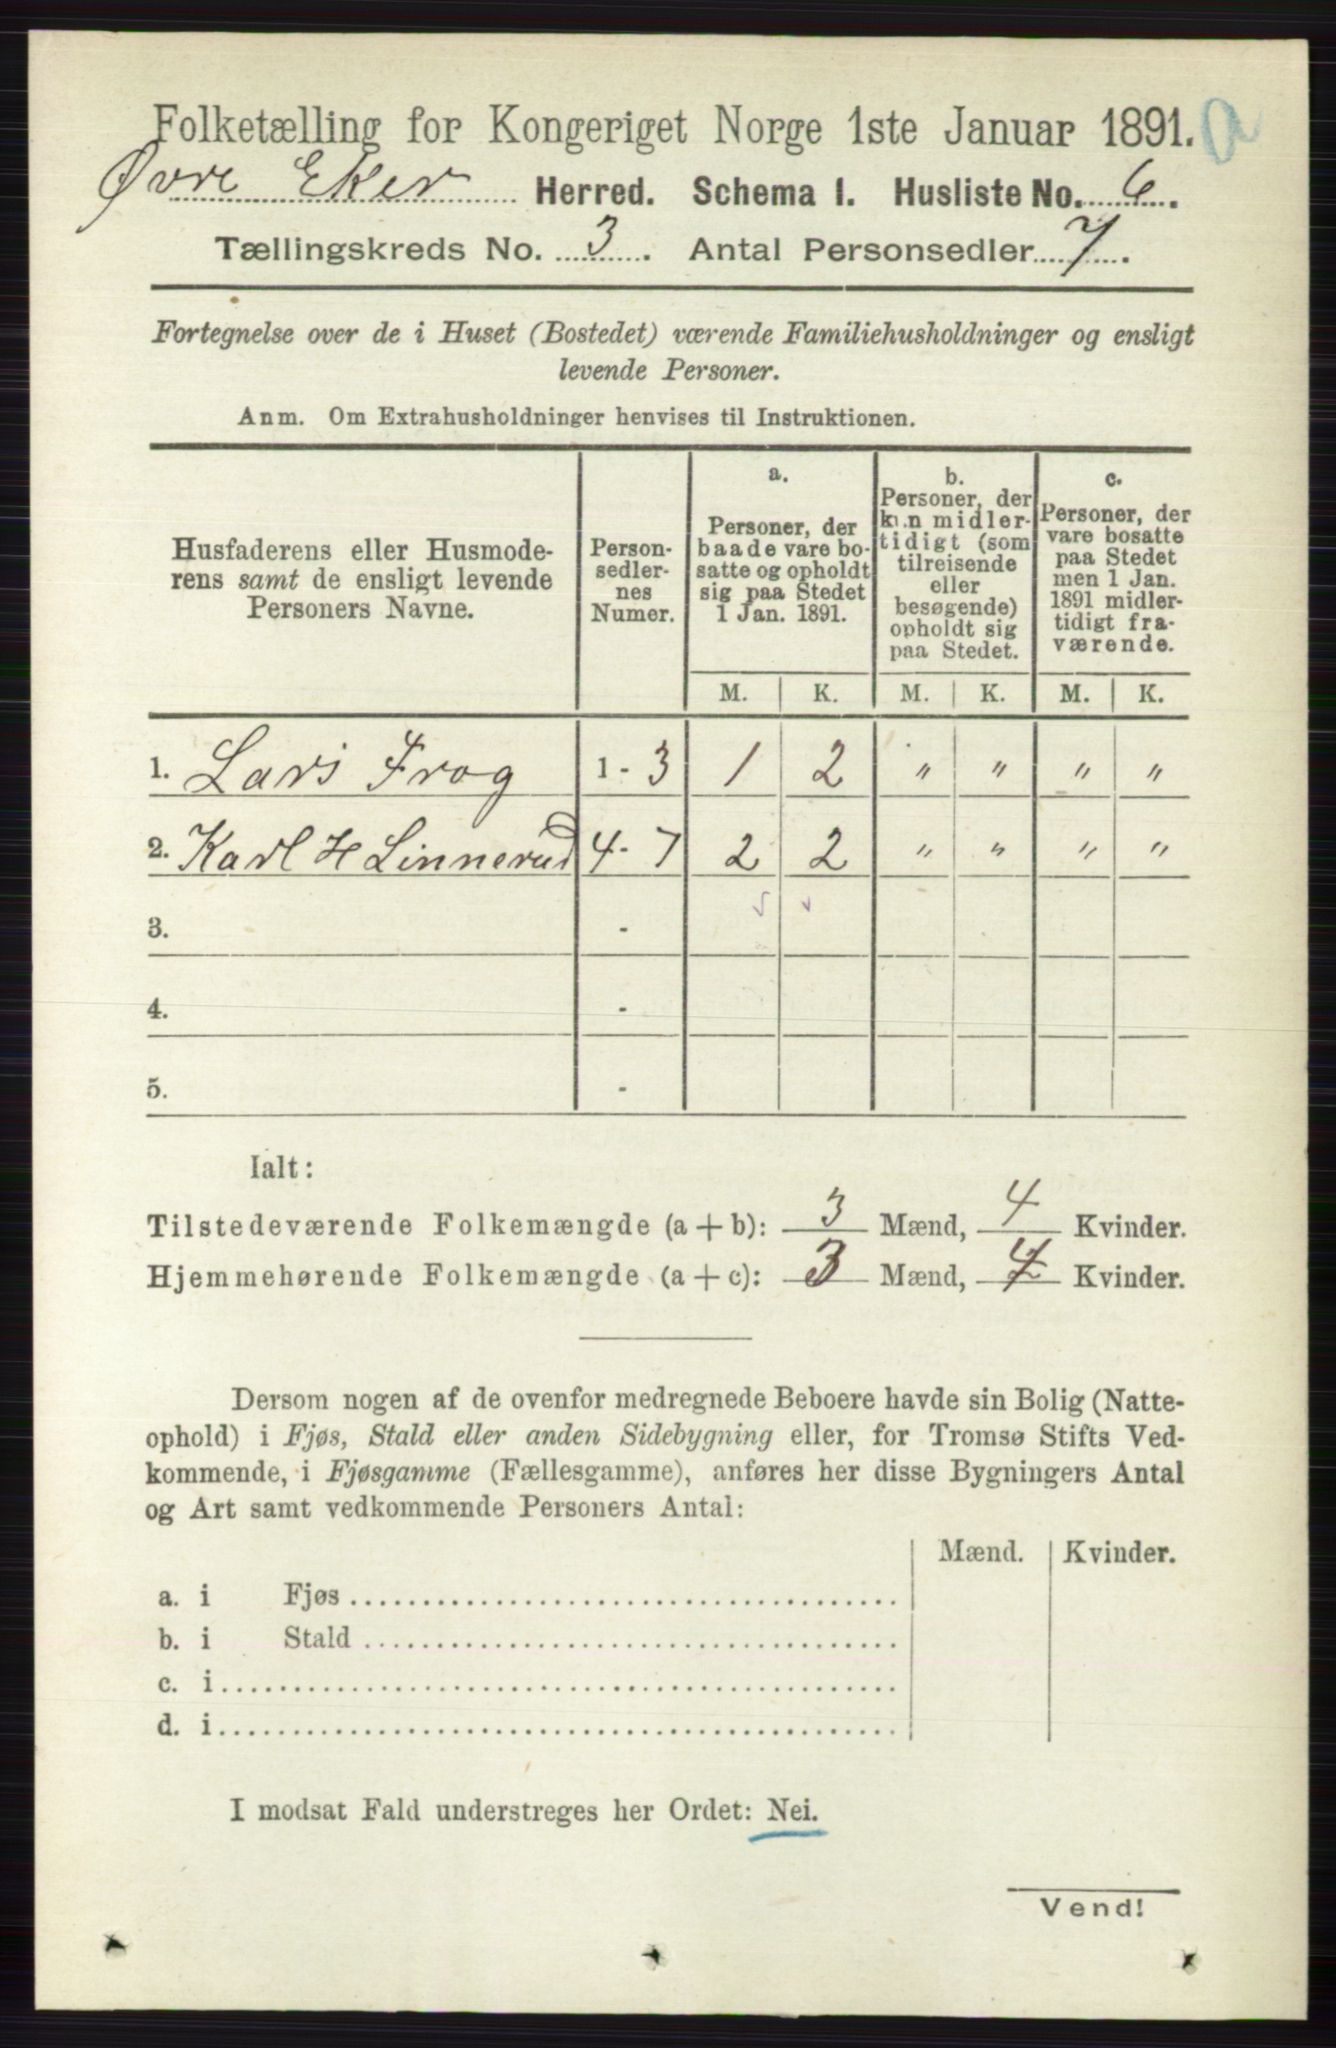 Folketælling for Kongeriget Norge 1ste Januar 1891. a
Øvre Eker Herred. Schema I. Husliste No. 6.
Tællingskreds No. 3. Antal Personsedler 7.
Fortegnelse over de i Huset (Bostedet) værende Familiehusholdninger og ensligt
levende Personer.
Anm. Om Extrahusholdninger henvises til Instruktionen.
Husfaderens eller Husmode-
rens samt de ensligt levende
Personers Navne.
Person-
sedler-
nes
Numer.
a.
Personer, der
baade vare bo-
satte og opholdt
sig paa Stedet
1 Jan. 1891.
b.
Personer, der
kun midler-
tidigt (som
tilreisende
eller
besøgende)
opholdt sig
paa Stedet.
c.
Personer, der
vare bosatte
paa Stedet
men 1 Jan.
1891 midler-
tidigt fra-
værende.
M. K. M. K. M. K.
1. Lars Frog 1 - 3 1 2 " " " "
2. Karl H Linnerud 4 - 7 2 2 " " " "
3. -
4. -
5. -
Ialt:
Tilstedeværende Folkemængde (a + b): 3 Mænd, 4 Kvinder.
Hjemmehørende Folkemængde (a + c): 3 Mænd, 4 Kvinder.
Dersom nogen af de ovenfor medregnede Beboere havde sin Bolig (Natte-
ophold) i Fjøs, Stald eller anden Sidebygning eller, for Tromsø Stifts Ved-
kommende, i Fjøsgamme (Fællesgamme), anføres her disse Bygningers Antal
og Art samt vedkommende Personers Antal:
Mænd. Kvinder.
a. i Fjøs
b. i Stald
c. i
d. i
I modsat Fald understreges her Ordet: Nei.
Vend!